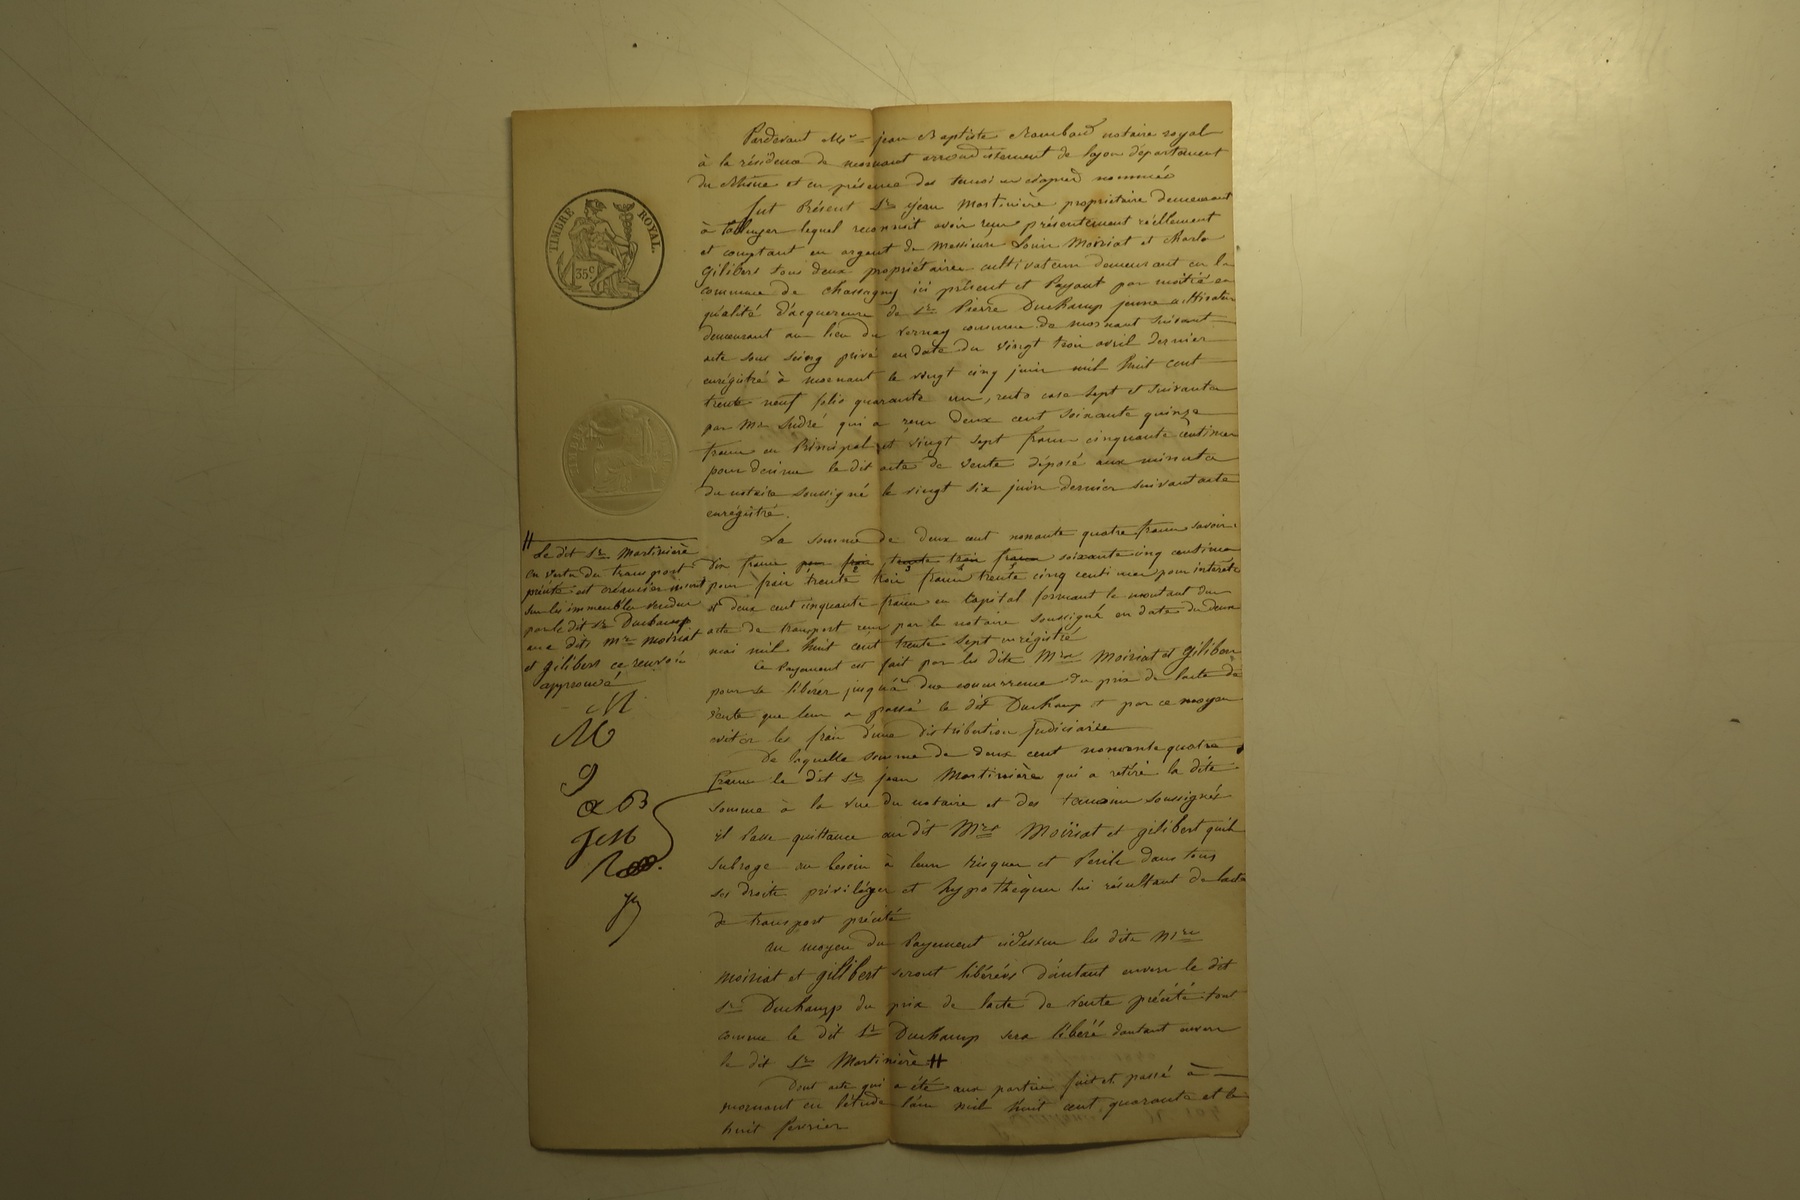 Pardevant Me jean Baptiste Rambaud notaire royal
à la résidence de mornant arrondissement de Lyon département
du Rhône et en présence des temoins ciaprès nommés
fut Présent Sr jean Martinière propriétaire demeurant
à lequel reconnoit avoir reçu présentement réellement
et comptant en argent de Messieurs Louis Moiriat et
gilibert tous deux propriétaires cultivateurs demeurant en la
commune de Chassagny ici présent et Payant par moitié en
qualité d'acquereurs de Sr Pierre Duchamp jeune cultivateur
demeurant au lieu du Vernay commune de mornant suivant
acte sous seing privé en date du vingt trois avril dernier
enrégistré à mornant le vingt cinq juin mil huit cent
trente neuf folio quarante un, recto case sept et suivantes
par Mr Sudré qui a reçu deux cent soixante quinze
francs en Principal et vingt sept francs cinquante centimes
pour decime le dit acte de vente déposé aux minutes
du notaire soussigné le vingt six juin dernier suivant acte
enrégistré.
TIMBRE ROYAL
35c
La somme de deux cent nonante quatre francs savoir:
dix francs pour frais trente trois francs soixante cinq centimes
pour frais trente trois francs trente cinq centimes pour intérêts
et deux cent cinquante francs en Capital formant le montant du
acte de transport reçu par le notaire soussigné en date du deux
mai mil huit cent trente sept enrégistré
Ce Payement est fait par les dits Mrs Moiriat et gilibert
pour se libérer jusqu'à due concurrence du prix de l'acte de
vente que leur a passé le dit Duchamp et par ce moyen
eviter les frais d'une distribution judiciaire
De laquelle somme de deux cent nonante quatre
francs le dit Sr jean Martinière qui a retiré la dite
somme à la vue du notaire et des temoins soussignés
il Passe quittance au dit Mrs Moiriat et gilibert quil
subroge au besoin à leur risques et Perils dans tous
ses droits privilèges et hypothèques lui résultant de lacte
de transport précité
au moyen du Payement cidessus les dits Mrs
moiriat et gilibert seront libérés d'autant envers le dit
Sr Duchamp du prix de lacte de vente précité tout
comme le dit Sr Duchamp sera libéré dautant envers
le dit Sr Martinière #
Dont acte qui a été aux parties fait et passé à
mornant en l'étude l'an mil huit cent quarante et le
huit fevrier
# Le dit Sr Martinière
en vertu du transport
précité est créancier
sur les immeubles vendus
par le dit Sr Duchamp
aux dits Mrs moiriat
et gilibert ce renvoi
approuvé
M
M
g
JM